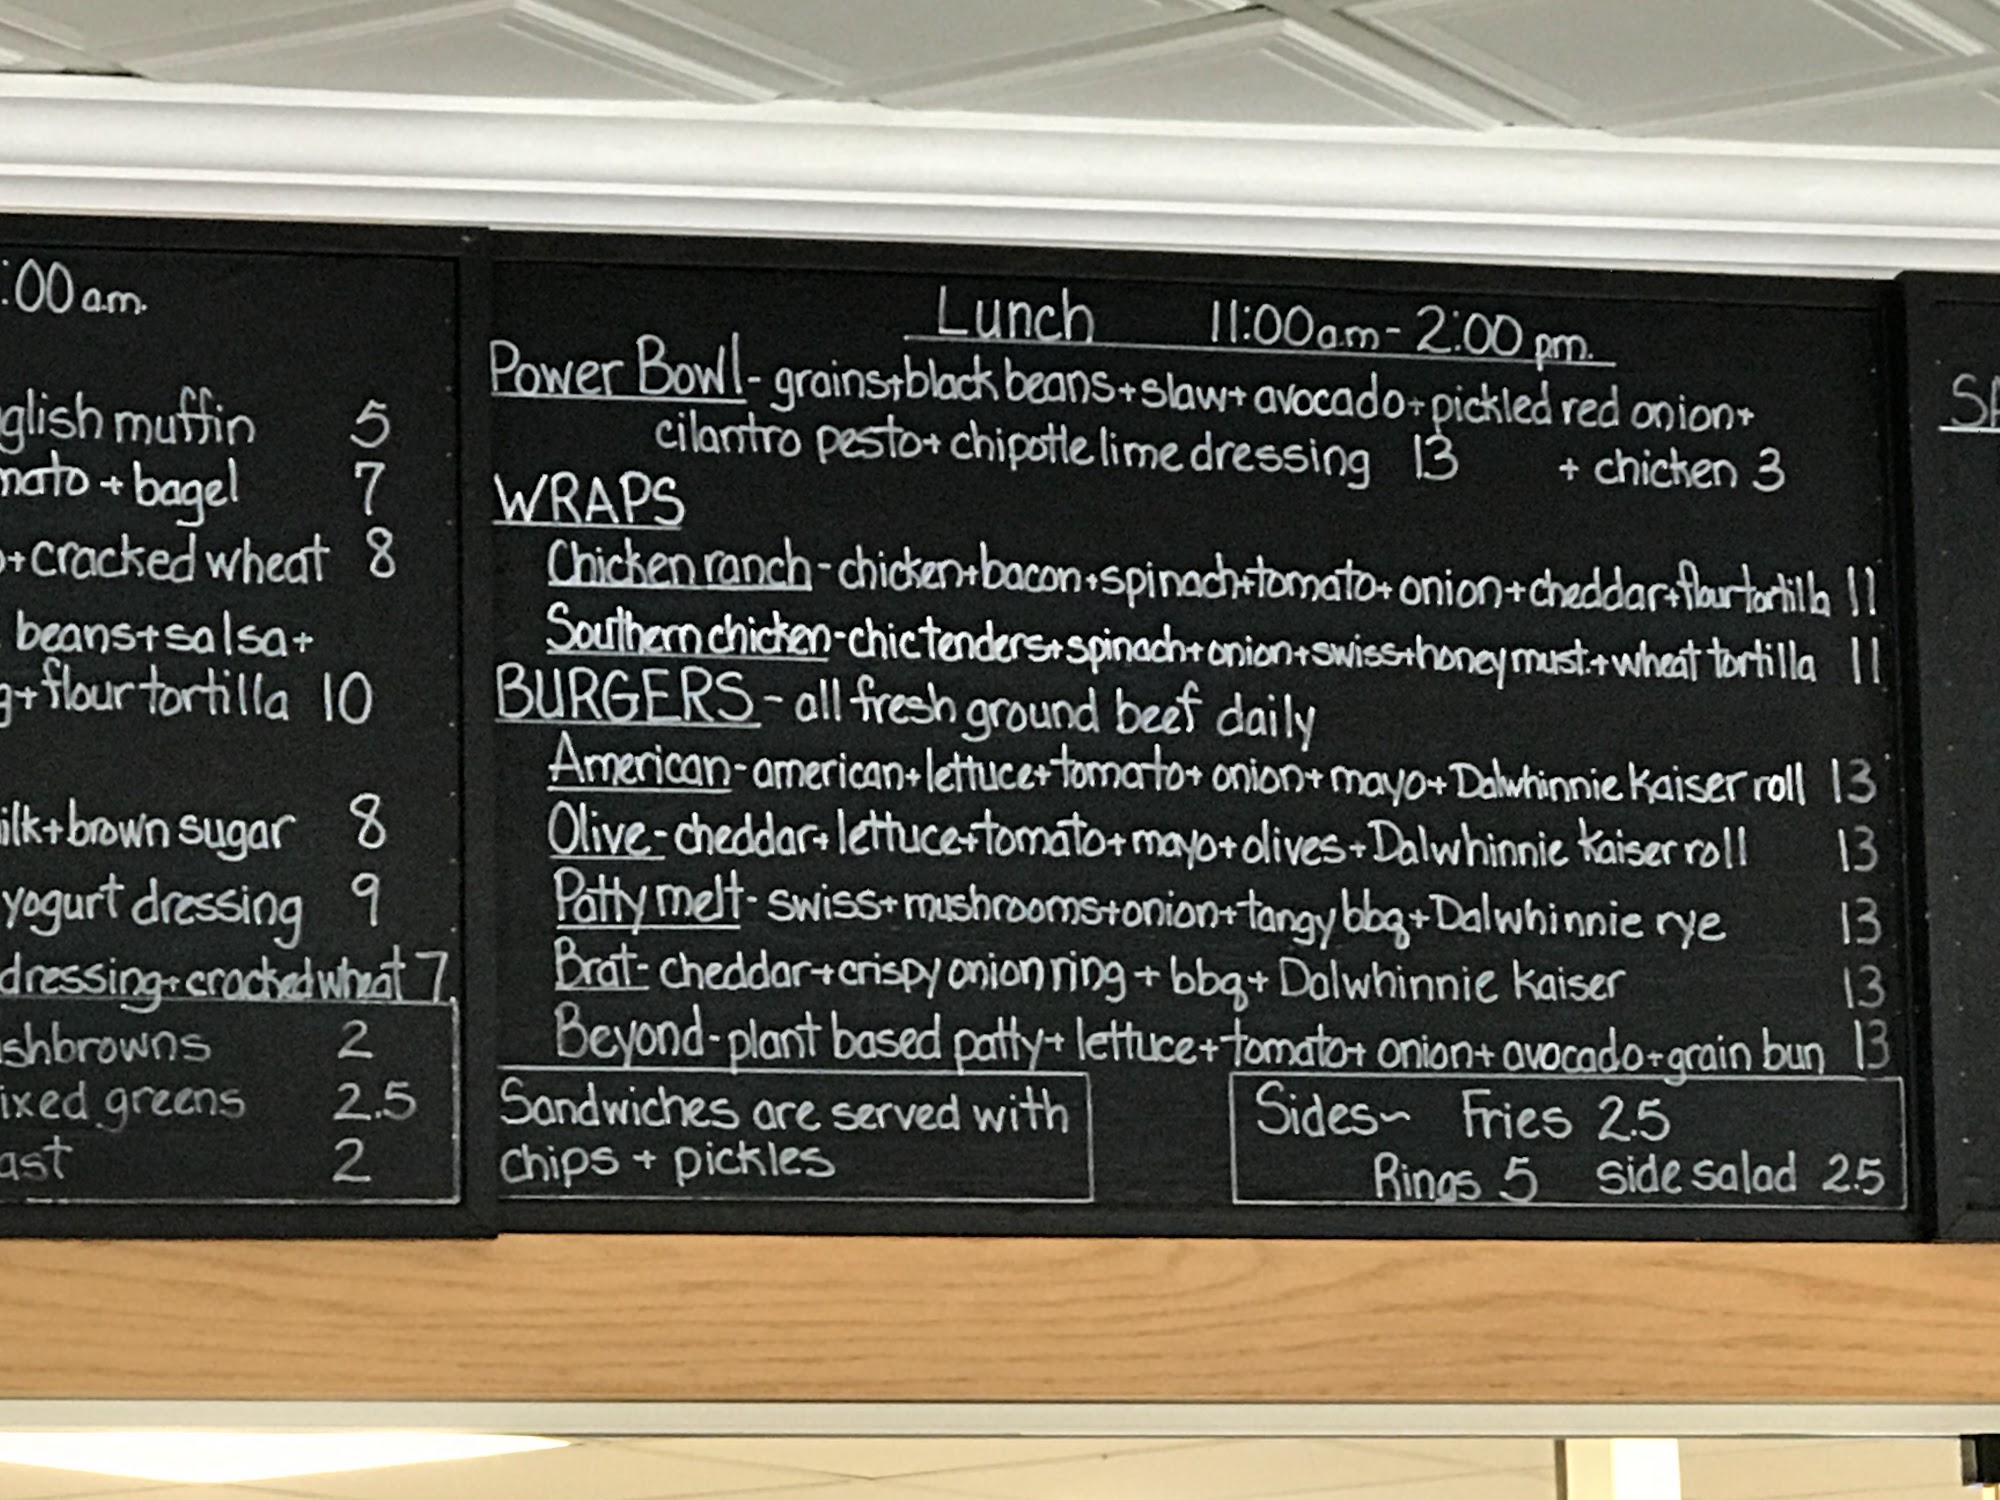 :00 a.m.
glish muffin 5
mato + bagel 7
+ cracked wheat 8
beans + salsa +
g + flour tortilla 10
ilk + brown sugar 8
yogurt dressing 9
dressing + cracked wheat 7
shbrowns 2
ixed greens 2.5
ast 2
Lunch 11:00 am - 2:00 pm.
Power Bowl - grains + black beans + slaw + avocado + pickled red onion +
cilantro pesto + chipotle lime dressing 13 + chicken 3
WRAPS
Chicken ranch - chicken + bacon + spinach + tomato + onion + cheddar + flour tortilla 11
Southern chicken - chic tenders + spinach + onion + swiss + honey must. + wheat tortilla 11
BURGERS - all fresh ground beef daily
American - american + lettuce + tomato + onion + mayo + Dalwhinnie Kaiser roll 13
Olive - cheddar + lettuce + tomato + mayo + olives + Dalwhinnie Kaiser roll 13
Patty melt - swiss + mushrooms + onion + tangy bbq + Dalwhinnie rye 13
Brat - cheddar + crispy onion ring + bbq + Dalwhinnie Kaiser 13
Beyond - plant based patty + lettuce + tomato + onion + avocado + grain bun 13
Sandwiches are served with
chips + pickles
Sides ~ Fries 2.5
Rings 5 side salad 2.5